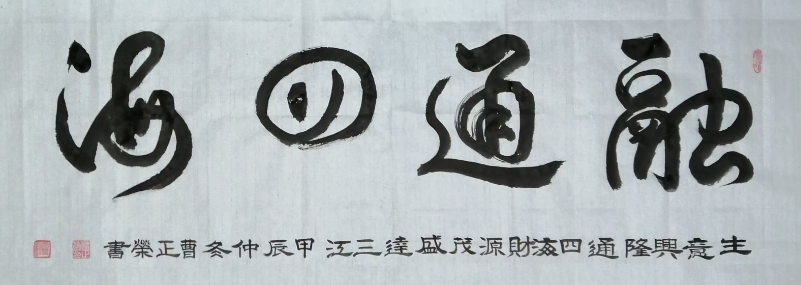 融通四海
生意興隆通四海財源茂盛達三江甲辰仲冬曹正榮書